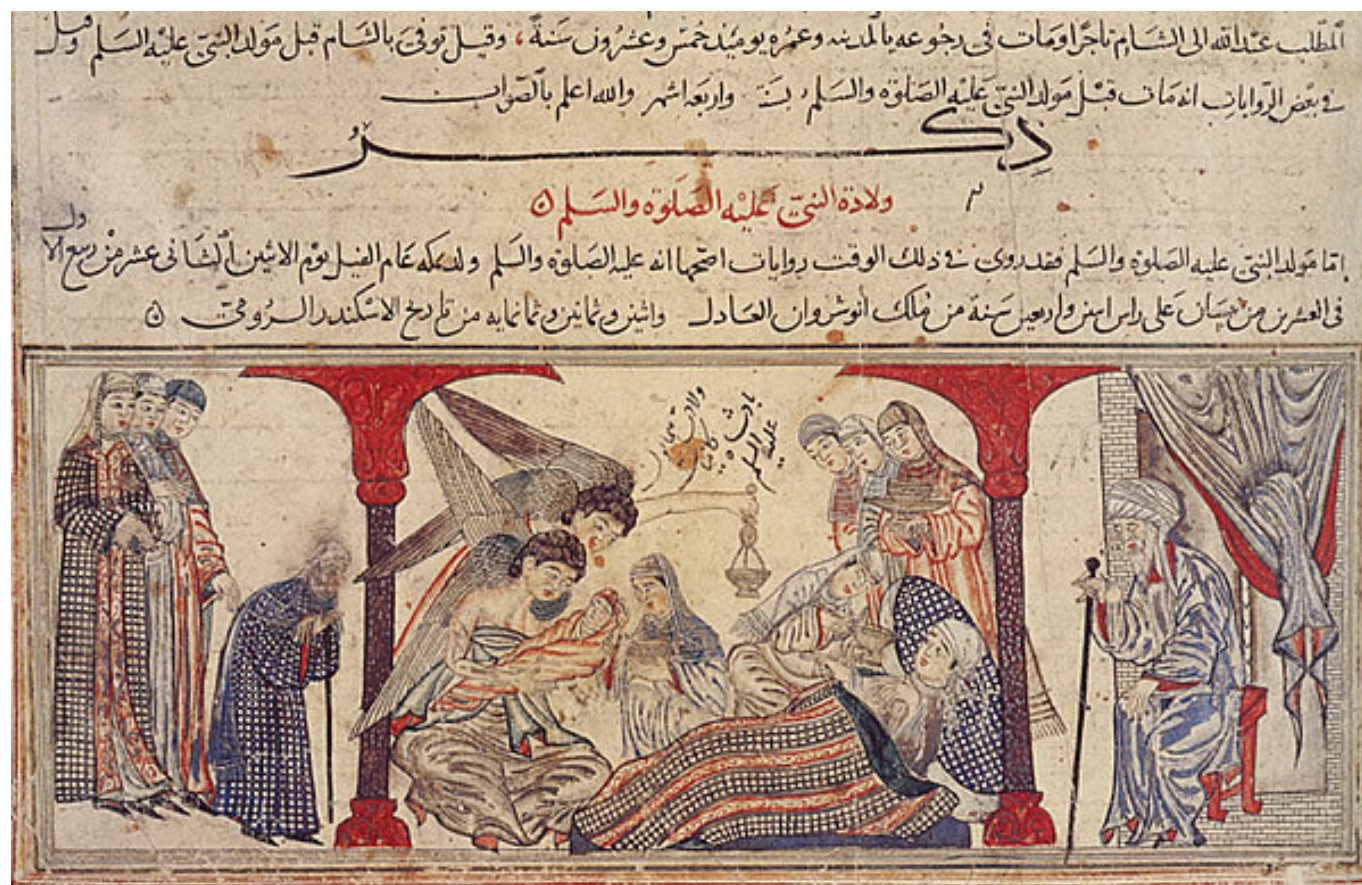 المطلب عبد الله الى الشام تاجرا ومات فى رجوعه بالمدينه وعمره يوميذ خمس وعشرون سنة وقيل توفى بالشام قبل مولد النبى عليه السلم وقيل
فى بعض الروايات انه مات قبل مولد النبى عليه الصلوة والسلم بسنة واربعه اشهر والله اعلم بالصواب
ذكر
ولادة النبى عليه الصلوة والسلم
اما مولد النبى عليه الصلوة والسلم فقد روى فى ذلك الوقت روايات اصحها انه عليه الصلوة والسلم ولد بمكه عام الفيل يوم الاثنين الثانى عشر من ربيع الاول
فى العشرين من نيسان على راس اثنين واربعين سنة من ملك انوشروان العادل واثنين وثمانين وثمانمايه من تاريخ الاسكندر الرومى
ولادت
عليه السلم